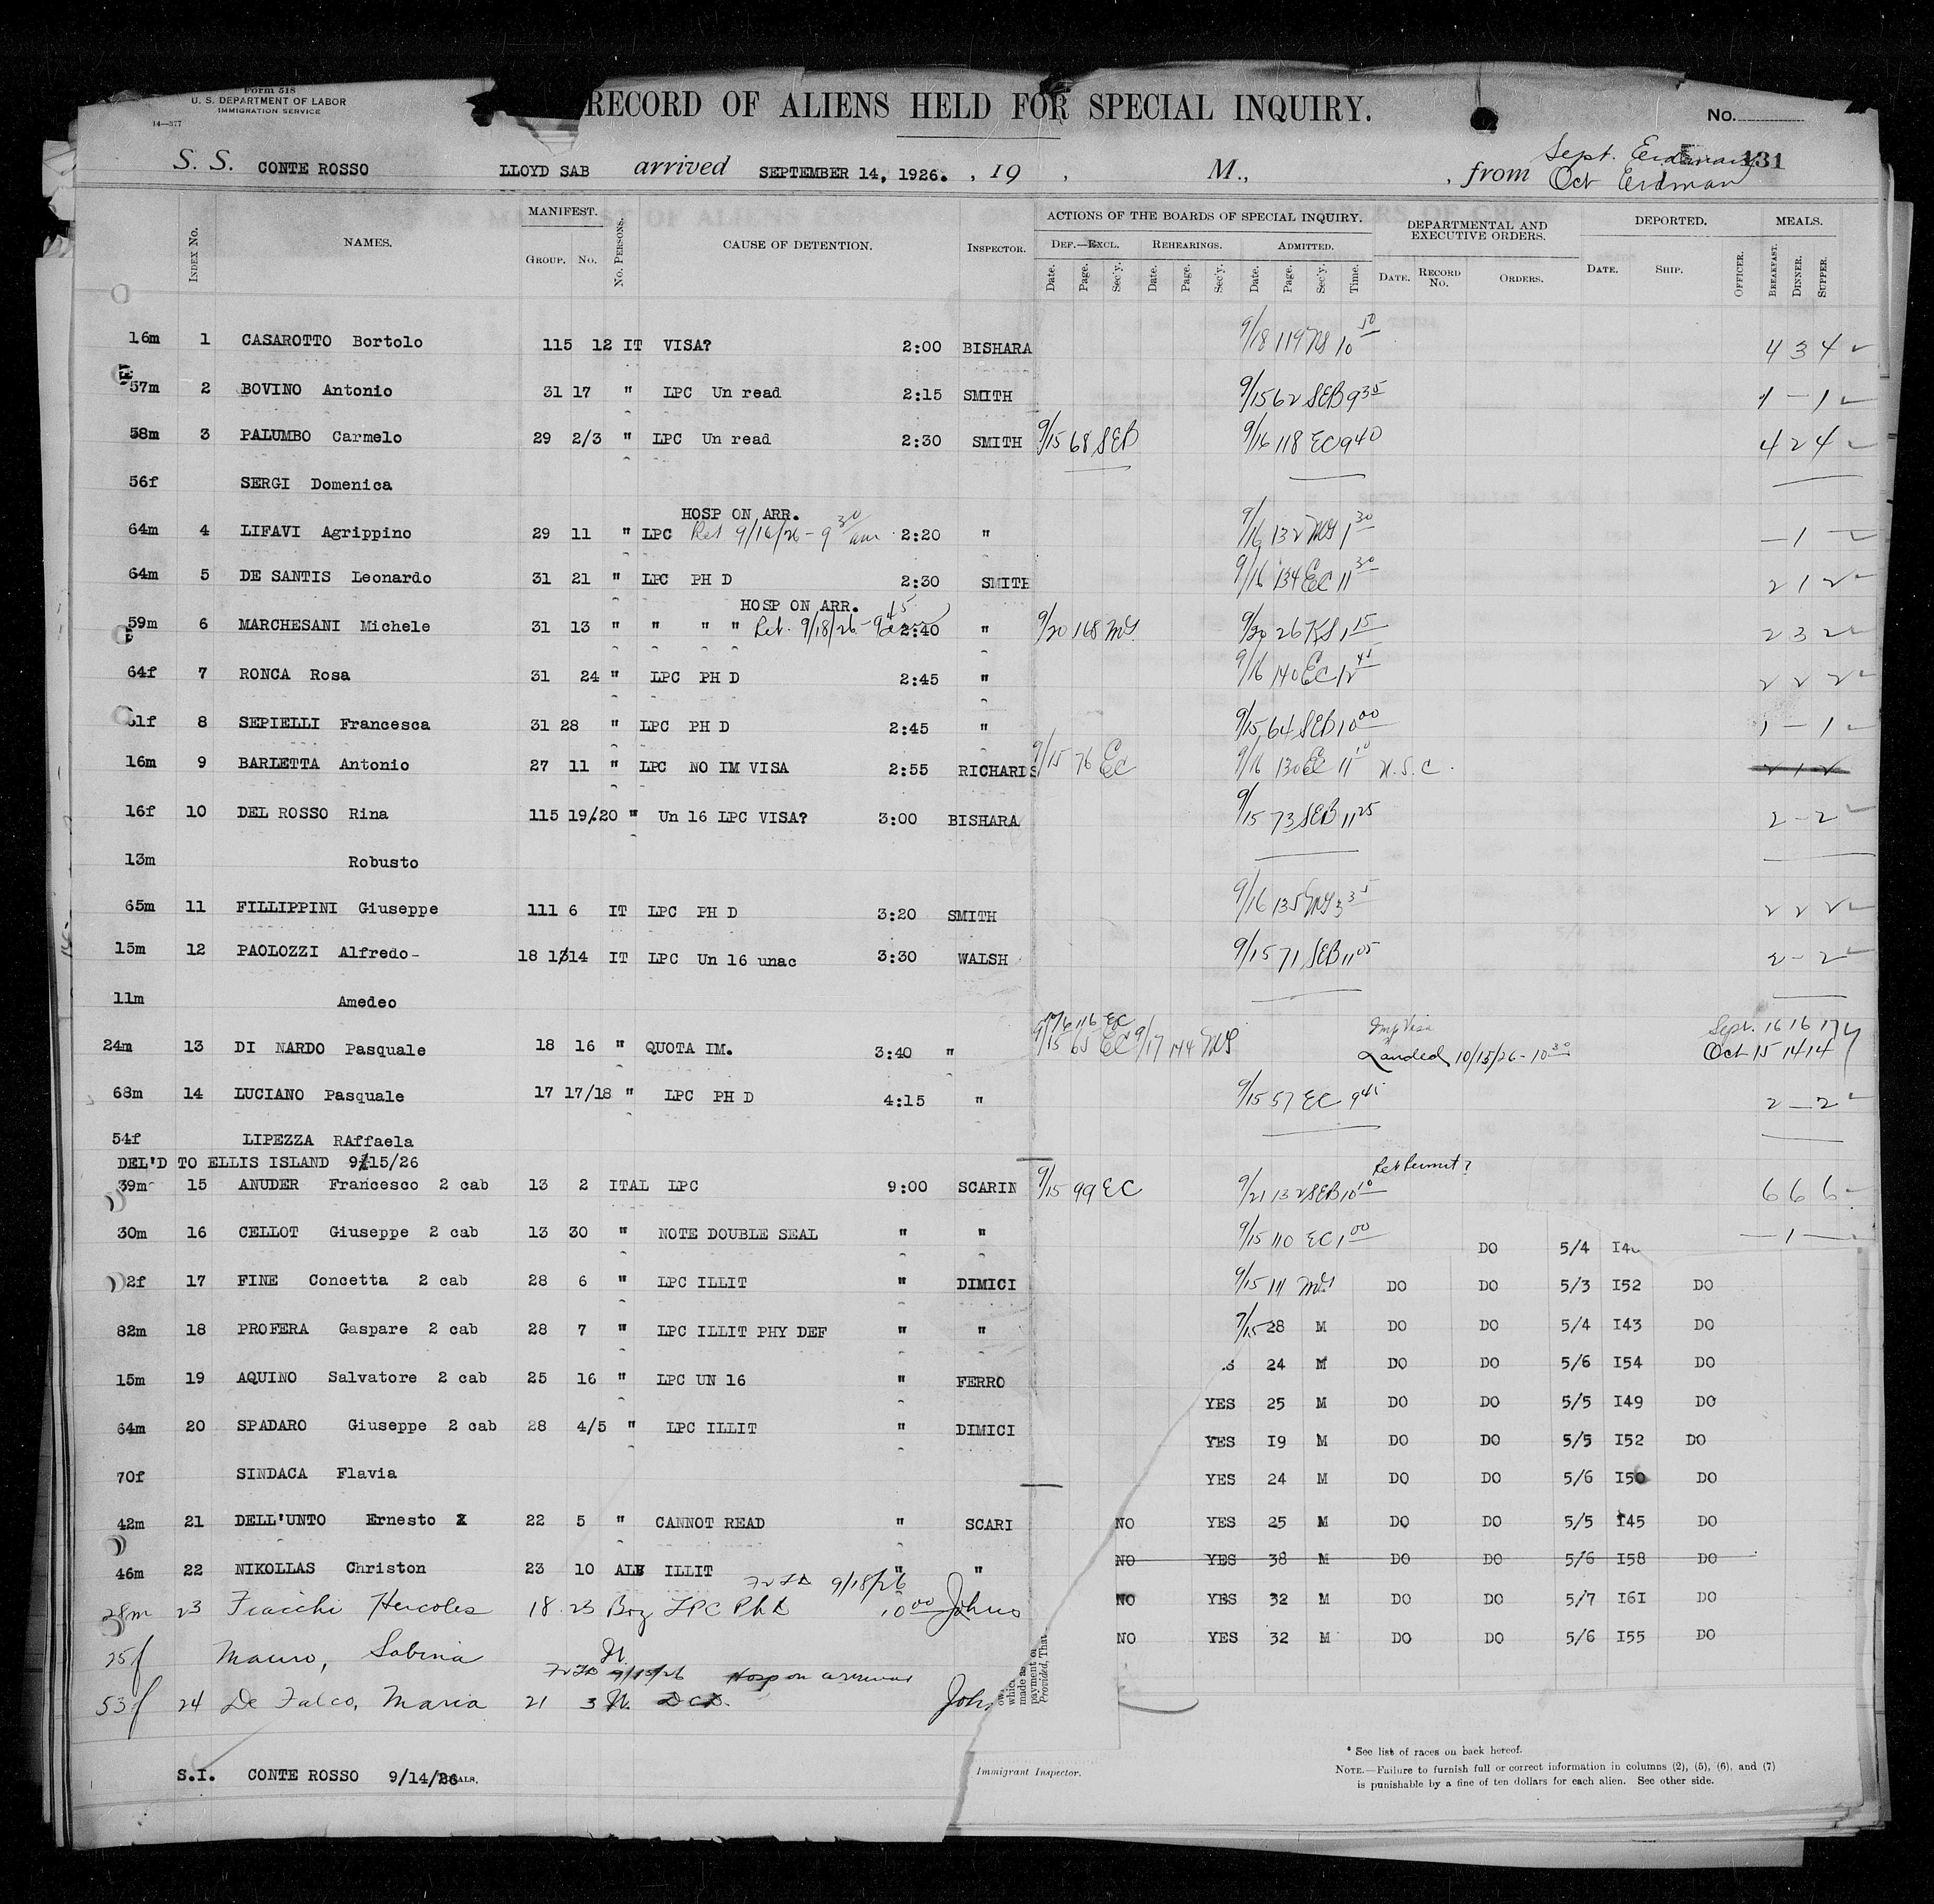 Form 518
U. S. DEPARTMENT OF LABOR
IMMIGRATION SERVICE
14—377
RECORD OF ALIENS HELD FOR SPECIAL INQUIRY.
No.
131
S. S. CONTE ROSSO LLOYD SAB arrived SEPTEMBER 14, 1926. , 19 , M., , from Sept. Erdman
Oct Erdman
INDEX No. NAMES. MANIFEST. GROUP. No. No. PERSONS. CAUSE OF DETENTION. INSPECTOR. ACTIONS OF THE BOARDS OF SPECIAL INQUIRY. DEPARTMENTAL AND EXECUTIVE ORDERS. DEPORTED. MEALS.
DEF.—EXCL. REHEARINGS. ADMITTED.
Date. Page. Sec'y. Date. Page. Sec'y. Date. Page. Sec'y. Time. DATE. RECORD No. ORDERS. DATE. SHIP. OFFICER. BREAKFAST. DINNER. SUPPER.
16m 1 CASAROTTO Bortolo 115 12 IT VISA? 2:00 BISHARA 9/18 119 MS 10 50 4 3 4
57m 2 BOVINO Antonio 31 17 " LPC Un read 2:15 SMITH 9/15 62 SEB 9 35 1 - 1
58m 3 PALUMBO Carmelo 29 2/3 " LPC Un read 2:30 SMITH 9/15 68 SEB 9/16 118 EC 9 40 4 2 4
56f SERGI Domenica
HOSP ON ARR.
64m 4 LIFAVI Agrippino 29 11 " LPC Ret 9/16/26 - 9 30 am 2:20 " 9/16 132 MS 1 30 - 1 -
64m 5 DE SANTIS Leonardo 31 21 " LPC PH D 2:30 SMITH 9/16 134 EC 11 30 2 1 2
HOSP ON ARR.
59m 6 MARCHESANI Michele 31 13 " " " " Ret. 9/18/26 - 9 45 2:40 " 9/20 168 MS 9/20 26 KS 1 15 2 3 2
64f 7 RONCA Rosa 31 24 " LPC PH D 2:45 " 9/16 140 EC 12 45 2 2 2
61f 8 SEPIELLI Francesca 31 28 " LPC PH D 2:45 " 9/15 64 SEB 10 00 1 - 1
16m 9 BARLETTA Antonio 27 11 " LPC NO IM VISA 2:55 RICHARDS 9/15 76 EC 9/16 130 EC 11 10 N. S. C. 2 1 2
16f 10 DEL ROSSO Rina 115 19/20 " Un 16 LPC VISA? 3:00 BISHARA 9/15 73 SEB 11 25 2 - 2
13m Robusto
65m 11 FILLIPPINI Giuseppe 111 6 IT LPC PH D 3:20 SMITH 9/16 135 MS 3 35 2 2 2
15m 12 PAOLOZZI Alfredo- 18 13 14 IT LPC Un 16 unac 3:30 WALSH 9/15 71 SEB 11 05 2 - 2
11m Amedeo
9/16 116 EC Imp Visa Sept. 16 16 17
24m 13 DI NARDO Pasquale 18 16 " QUOTA IM. 3:40 " 9/15 65 EC 9/17 144 MS Landed 10/15/26 - 10 30 Oct 15 14 14
68m 14 LUCIANO Pasquale 17 17/18 " LPC PH D 4:15 " 9/15 57 EC 9 45 2 - 2
54f LIPEZZA RAffaela
DEL'D TO ELLIS ISLAND 9/15/26 Ret Permit?
39m 15 ANUDER Francesco 2 cab 13 2 ITAL LPC 9:00 SCARIN 9/15 99 EC 9/21 132 SEB 10 10 6 6 6
30m 16 CELLOT Giuseppe 2 cab 13 30 " NOTE DOUBLE SEAL " " 9/15 110 EC 1 00 - 1 -
DO 5/4 I4
2f 17 FINE Concetta 2 cab 28 6 " LPC ILLIT " DIMICI 9/15 111 MS DO DO 5/3 I52 DO
82m 18 PROFERA Gaspare 2 cab 28 7 " LPC ILLIT PHY DEF " " 9/15 28 M DO DO 5/4 I43 DO
S 24 M DO DO 5/6 I54 DO
15m 19 AQUINO Salvatore 2 cab 25 16 " LPC UN 16 " FERRO
YES 25 M DO DO 5/5 I49 DO
64m 20 SPADARO Giuseppe 2 cab 28 4/5 " LPC ILLIT " DIMICI
YES I9 M DO DO 5/5 I52 DO
70f SINDACA Flavia YES 24 M DO DO 5/6 I50 DO
42m 21 DELL'UNTO Ernesto X 22 5 " CANNOT READ " SCARI NO YES 25 M DO DO 5/5 I45 DO
NO YES 38 M DO DO 5/6 I58 DO
46m 22 NIKOLLAS Christon 23 10 ALB ILLIT " "
9/18/26
28m 23 Fiacchi Hercoles 18 23 Brz LPC Ph D 10 00 Johns NO YES 32 M DO DO 5/7 I6I DO
NO YES 32 M DO DO 5/6 I55 DO
25f Mauro, Sabina It.
9/15/26 Hosp on arrival
53f 24 De Falco, Maria 21 3 It. DCD. John
which made as payment of Provided, That
* See list of races on back hereof.
Immigrant Inspector.
NOTE.—Failure to furnish full or correct information in columns (2), (5), (6), and (7)
is punishable by a fine of ten dollars for each alien. See other side.
S.I. CONTE ROSSO 9/14/26